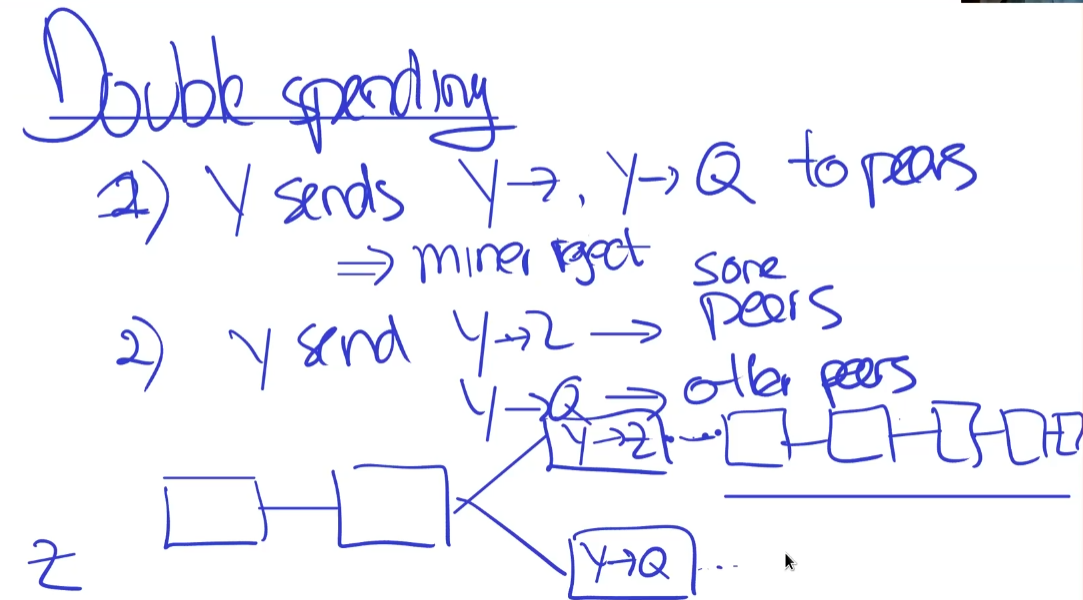 Double spending
1) Y sends Y→, Y→Q to peers
⇒ miner reject
2) Y send Y→Z → some peers
Y→Q ⇒ other peers
Y→Z
Y→Q ...
Z